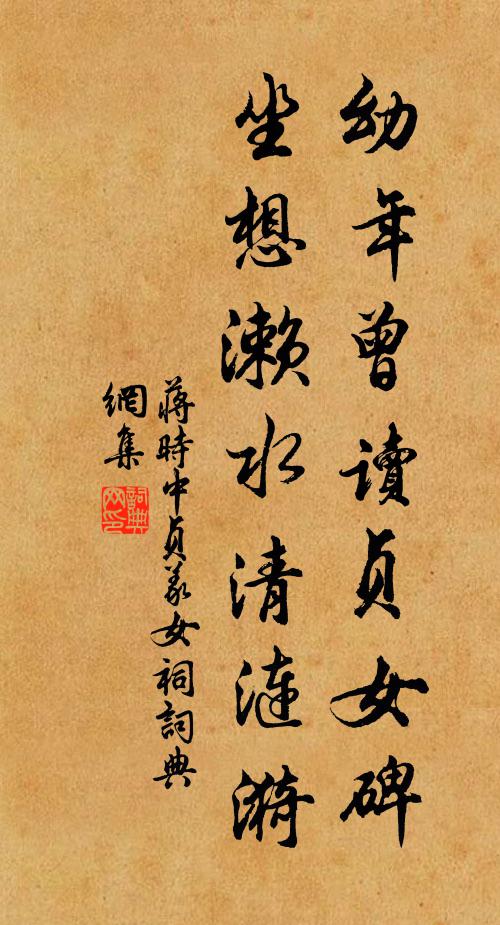 幼年曾讀貞女碑
坐想濑水清漣漪
蔣時中貞義女祠詞典
網集
詞典
网印